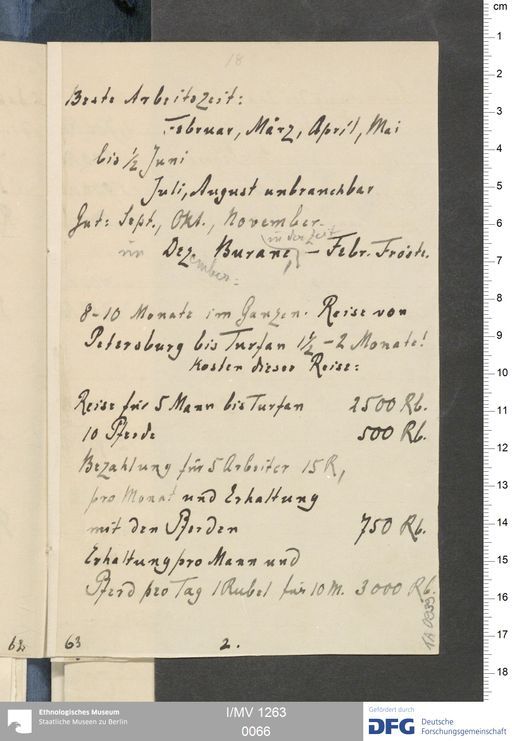 18
Beste Arbeitszeit:
Februar, März, April, Mai
bis 1/2 Juni
Juli, August unbrauchbar
Gut: Sept., Okt., November.
in der Zeit
im Dezember: Burane, – Febr. Fröste.
8-10 Monate im Ganzen. Reise von
Petersburg bis Turfan 1 1/2 – 2 Monate!
Kosten dieser Reise:
Reise für 5 Mann bis Turfan 2500 Rb.
10 Pferde 500 Rb.
Bezahlung für 5 Arbeiter 15 R,
pro Monat und Erhaltung
mit den Pferden 750 Rb.
Erhaltung pro Mann und
Pferd pro Tag 1 Rubel für 10 M. 3000 Rb.
62 63 2.
cm
1
2
3
4
5
6
7
8
9
10
11
12
13
14
15
16
17
18
Ethnologisches Museum
Staatliche Museen zu Berlin
I/MV 1263
0066
Gefördert durch
DFG Deutsche
Forschungsgemeinschaft